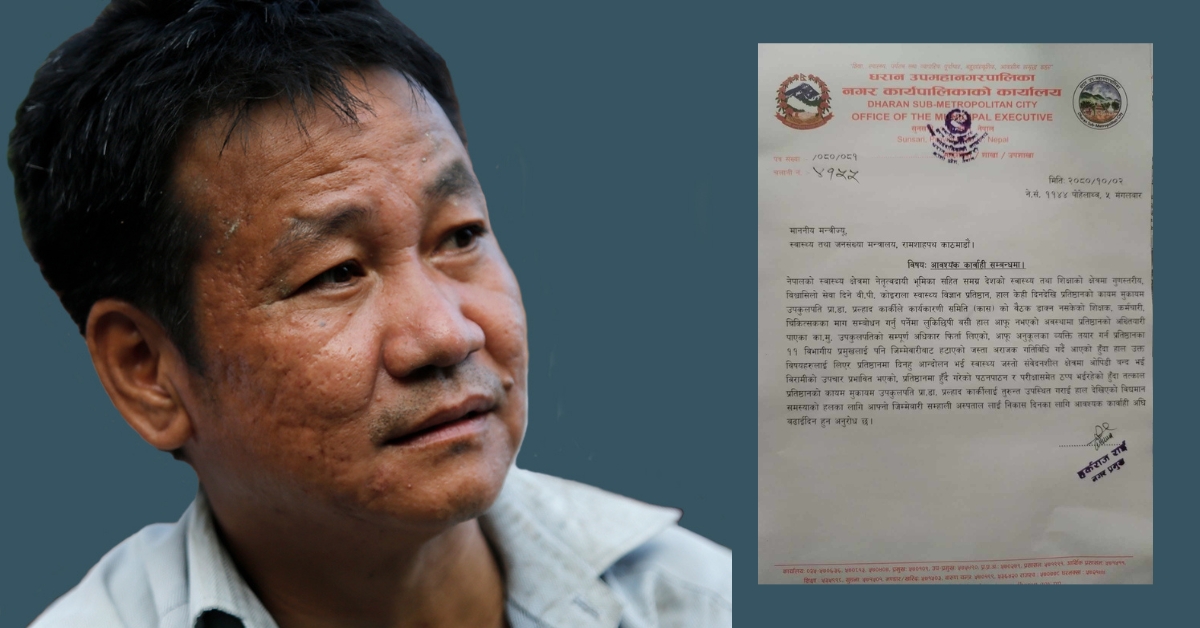 धरान उपमहानगरपालिका
नगर कार्यपालिकाको कार्यालय
DHARAN SUB-METROPOLITAN CITY
OFFICE OF THE MUNICIPAL EXECUTIVE
Nepal
/०८०/०८१
४१५५
मिति: २०८०/१०/०२
ने.सं. ११४४ पोहेलाथ्व, ५ मंगलवार
माननीय मन्त्रीज्यू,
स्वास्थ्य तथा जनसंख्या मन्त्रालय, रामशाहपथ काठमाडौं।
विषय: आवश्यक कार्वाही सम्बन्धमा।
नेपालको स्वास्थ्य क्षेत्रमा नेतृत्वदायी भूमिका सहित समग्र देशको स्वास्थ्य तथा शिक्षाको क्षेत्रमा गुणस्तरीय,
विश्वासिलो सेवा दिने वी.पी. कोइराला स्वास्थ्य विज्ञान प्रतिष्ठान, हाल केही दिनदेखि प्रतिष्ठानको कायम मुकायम
उपकुलपति प्रा.डा. प्रल्हाद कार्कीले कार्यकारणी समिति (कास) को बैठक डाक्न नसकेको शिक्षक, कर्मचारी,
चिकित्सकका माग सम्बोधन गर्नु पर्नेमा लुकिछिपी वसी हाल आफू नभएको अवस्थामा प्रतिष्ठानको अख्तियारी
पाएका का.मु. उपकुलपतिको सम्पूर्ण अधिकार फिर्ता लिएको, आफू अनुकूलका व्यक्ति तयार गर्न प्रतिष्ठानका
११ विभागीय प्रमुखलाई पनि जिम्मेवारीबाट हटाएको जस्ता अराजक गतिविधि गर्दै आएको हुँदा हाल उक्त
विषयहरुलाई लिएर प्रतिष्ठानमा दिनहु आन्दोलन भई स्वास्थ्य जस्तो संवेदनशील क्षेत्रमा ओपिडी बन्द भई
विरामीको उपचार प्रभावित भएको, प्रतिष्ठानमा हुँदै गरेको पठनपाठन र परीक्षासमेत ठप्प भईरहेको हुँदा तत्काल
प्रतिष्ठानको कायम मुकायम उपकुलपति प्रा.डा. प्रल्हाद कार्कीलाई तुरुन्त उपस्थित गराई हाल देखिएको विद्यमान
समस्याको हलका लागि आफ्नो जिम्मेवारी सम्हाली अस्पताल लाई निकास दिनका लागि आवश्यक कार्वाही अघि
बढाईदिन हुन अनुरोध छ।
हर्कराज राई
नगर प्रमुख